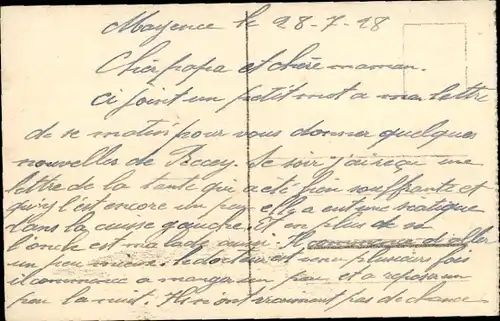 Mayence le 28-7-28
Cher papa et chère maman.
Ci joint un petit mot a ma lettre
de ce matin pour vous donner quelques
nouvelles de Recey. Ce soir j'ai reçu une
lettre de la tante qui a été bien souffrante et
qui l'est encore un peu elle a eut une siatique
dans la cuisse gauche. Et en plus de ce
l'oncle est malade aussi. Il d'aller
un peu mieux. Le docteur est venu plusieurs fois
il commence a manger un peu et a reposer un
peu la nuit. Ils n'ont vraiment pas de chance